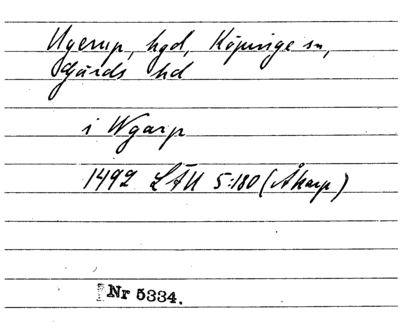 Ugerup, hgd, Köpinge sn,
Gärds hd
i Wgarp
1492 LÄU 5:180 (Åkarp)
Nr 5334.